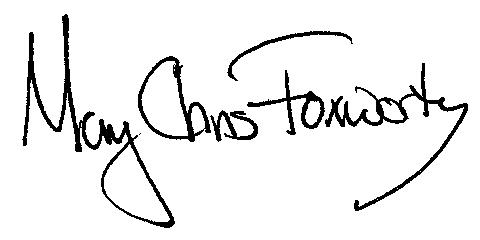 Mary Chris Foxworthy